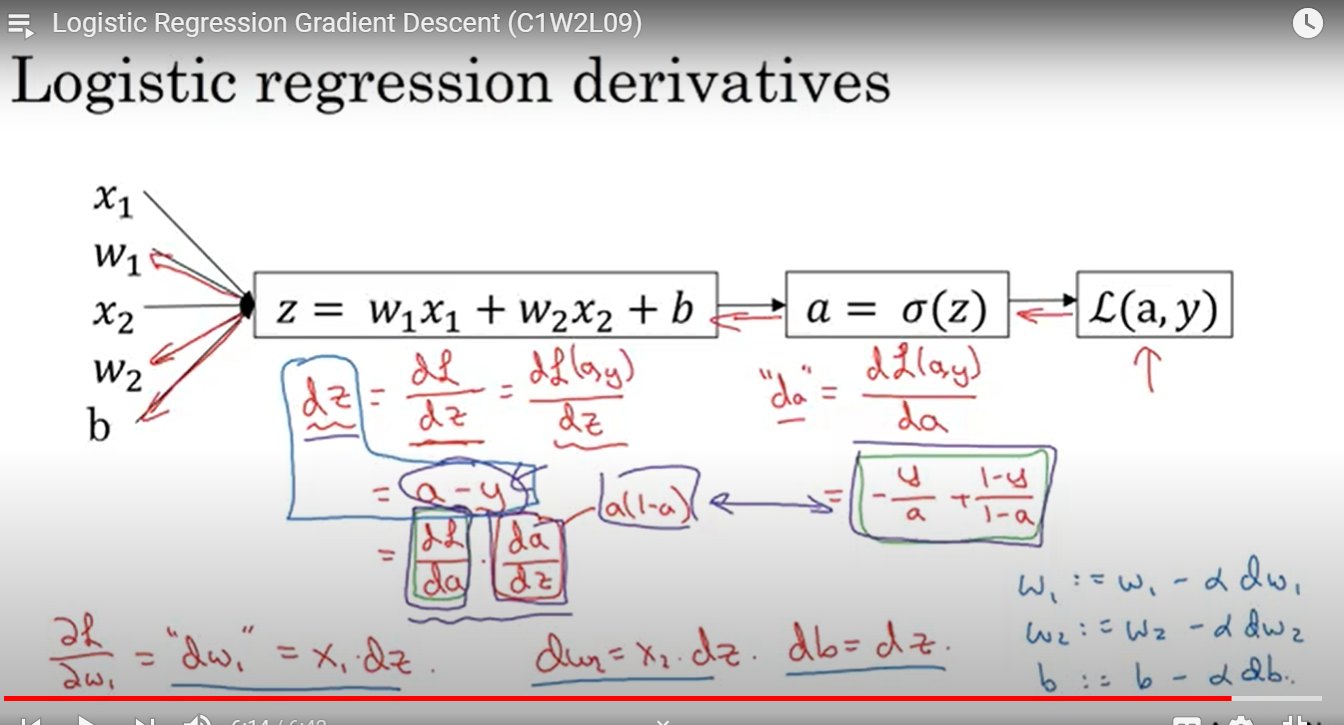 Logistic Regression Gradient Descent (C1W2L09)
Logistic regression derivatives
x₁
w₁
x₂
w₂
b
z = w₁x₁ + w₂x₂ + b
a = σ(z)
ℒ(a, y)
dz = dℒ/dz = dℒ(a,y)/dz
"da" = dℒ(a,y)/da
= a - y
a(1-a)
= -y/a + (1-y)/(1-a)
= dℒ/da · da/dz
∂ℒ/∂w₁ = "dw₁" = x₁·dz.
dw₂ = x₂·dz.
db = dz.
w₁ := w₁ - α dw₁
w₂ := w₂ - α dw₂
b := b - α db.